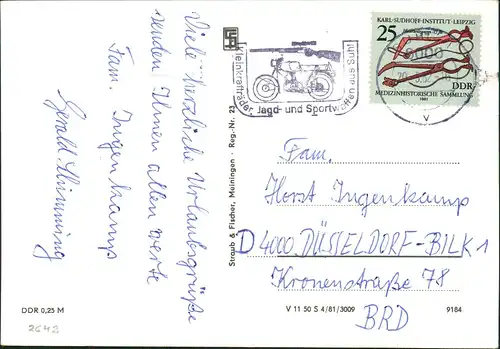 Viele herzliche Urlaubsgrüße
senden Ihnen allen werte
Fam. Ingenkamp
Gerald
Straub & Fischer, Meiningen - Reg.-Nr. 23
Kleinkrafträder, Jagd- und Sportwaffen aus Suhl
KARL-SUDHOFF-INSTITUT·LEIPZIG
25
DDR
MEDIZINHISTORISCHE SAMMLUNG
1981
v
Fam.
Horst Ingenkamp
D 4000 DÜSSELDORF-BILK 1
Kronenstraße 78
BRD
DDR 0,25 M
V 11 50 S 4/81/3009
9184